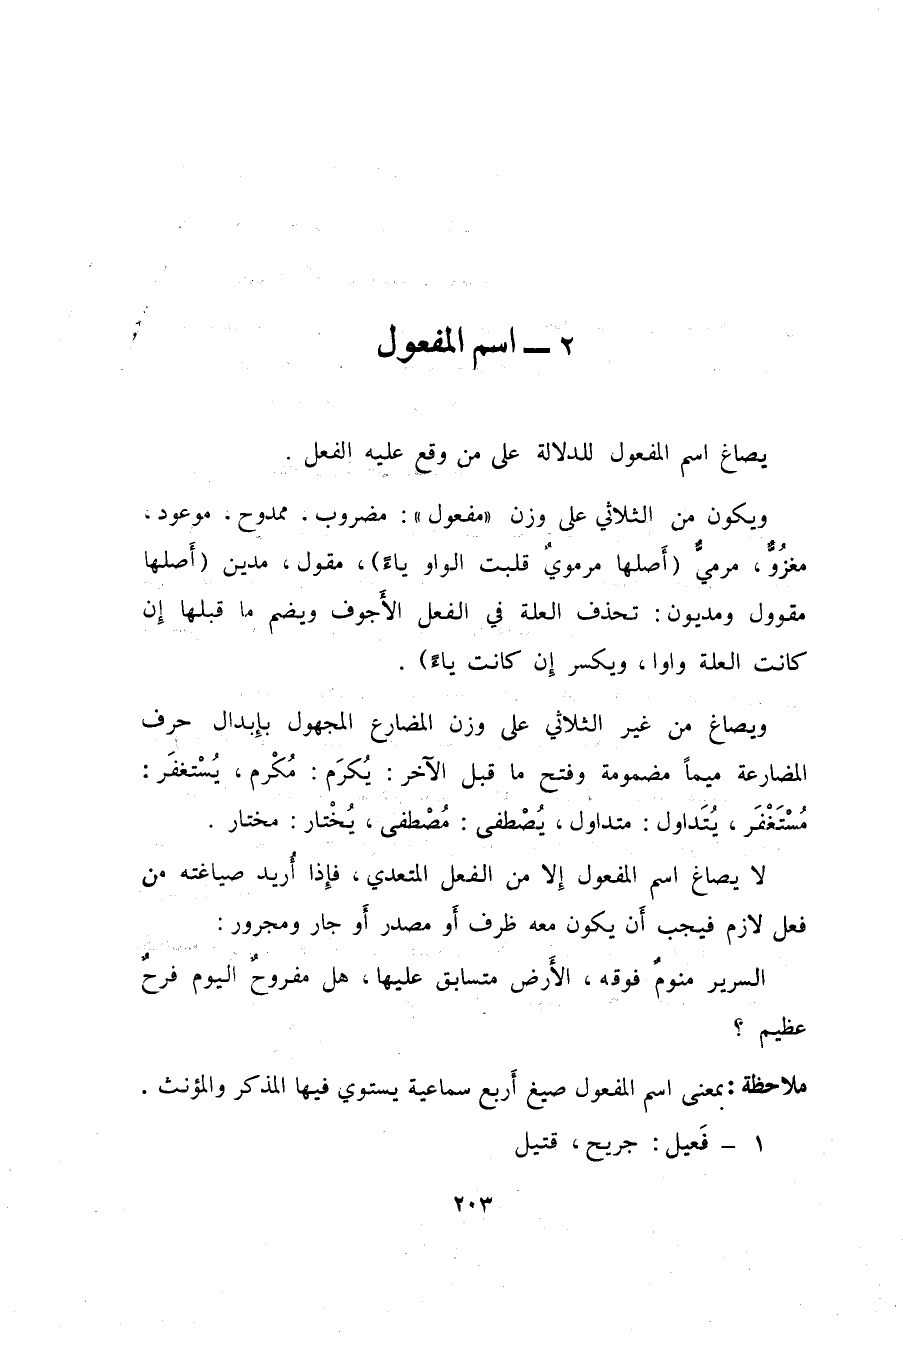 ٢ ــ اسم المفعول
يصاغ اسم المفعول للدلالة على من وقع عليه الفعل .
ويكون من الثلاثي على وزن «مفعول» : مضروب . ممدوح . موعود ،
مغزُوٌّ ، مرميٌّ (أَصلها مرمويٌ قلبت الواو ياءً) ، مقول ، مدين (أَصلها
مقوول ومديون : تحذف العلة في الفعل الأَجوف ويضم ما قبلها إن
كانت العلة واوا ، ويكسر إن كانت ياءً) .
ويصاغ من غير الثلاثي على وزن المضارع المجهول بإبدال حرف
المضارعة ميماً مضمومة وفتح ما قبل الآخر : يُكرَم : مُكْرم ، يُسْتغفَر :
مُسْتَغْفَر ، يُتَداول : متداول ، يُصْطفى : مُصْطفى ، يُخْتار : مختار .
لا يصاغ اسم المفعول إلا من الفعل المتعدي ، فإذا أُريد صياغته من
فعل لازم فيجب أَن يكون معه ظرف أَو مصدر أَو جار ومجرور :
السرير منومٌ فوقه ، الأَرض متسابق عليها ، هل مفروحٌ اليوم فرحٌ
عظيم ؟
ملاحظة : بمعنى اسم المفعول صيغ أَربع سماعية يستوي فيها المذكر والمؤنث .
١ ــ فَعيل : جريح ، قتيل
٢٠٣